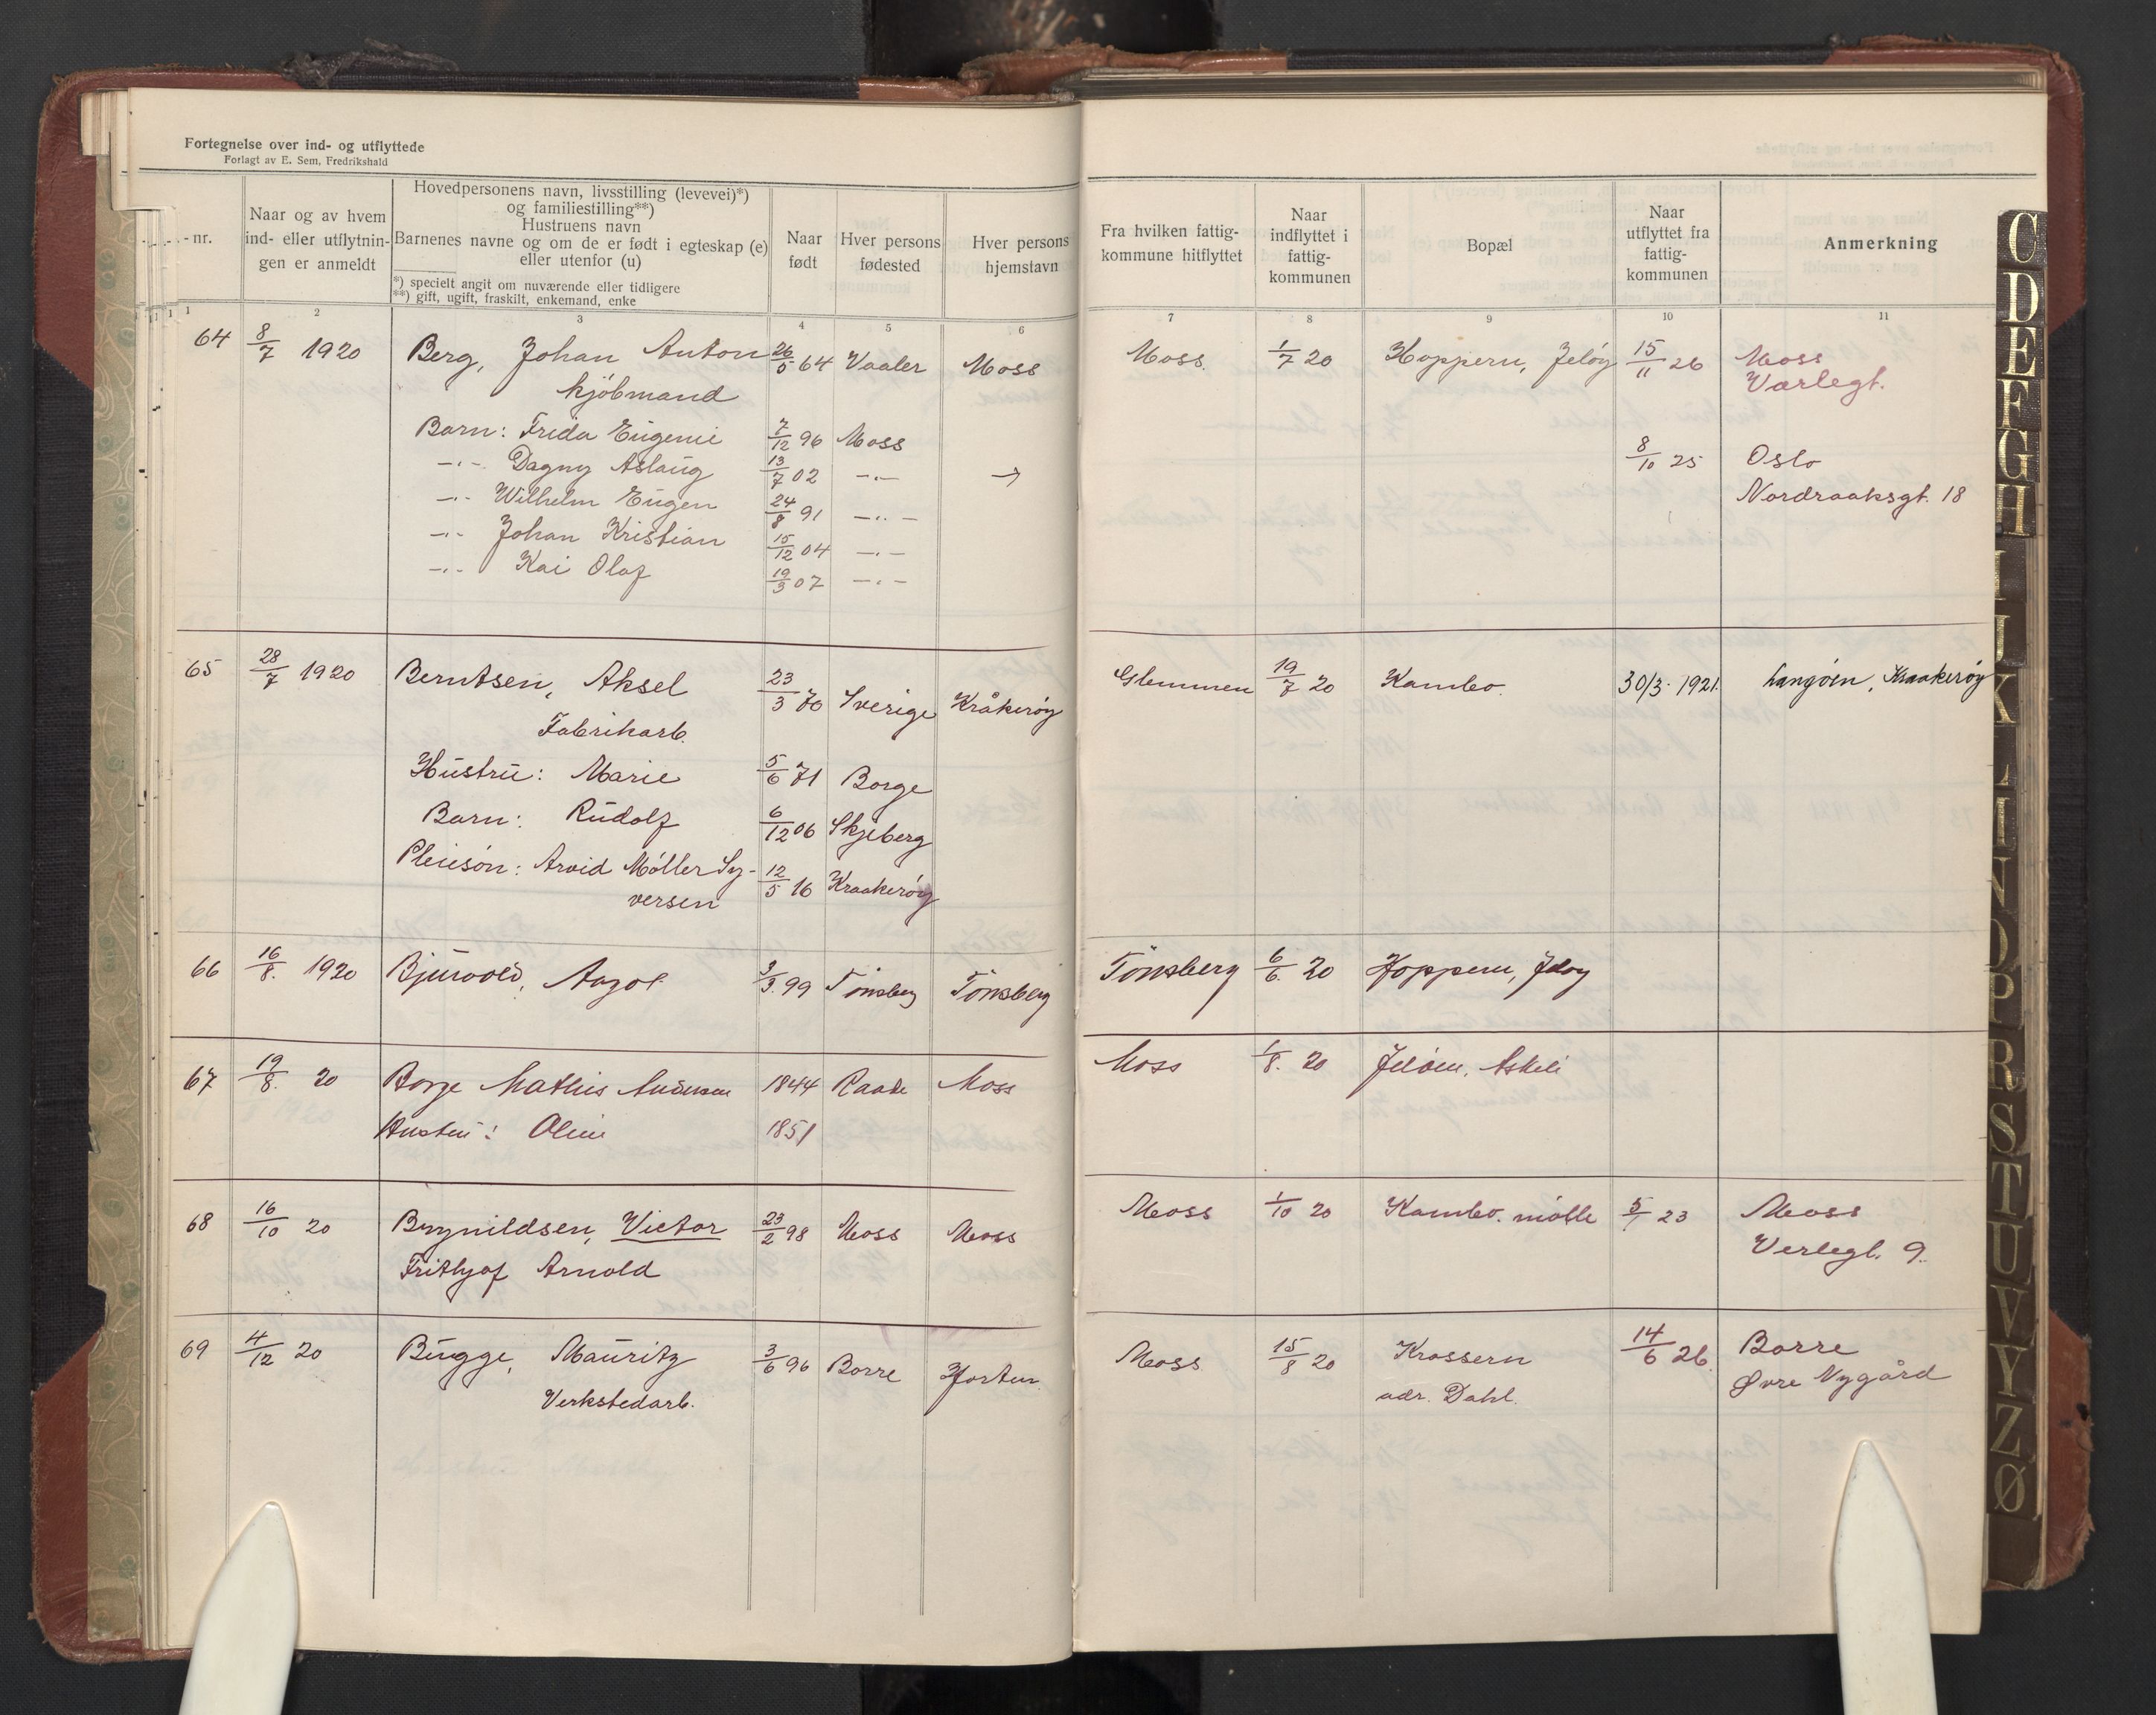 Fortegnelse over ind- og utflyttede
Forlagt av E. Sem, Fredrikshald
nr.
Naar og av hvem
ind- eller utflytnin-
gen er anmeldt
Hovedpersonens navn, livsstilling (levevei)*)
og familiestilling**)
Hustruens navn
Barnenes navne og om de er født i egteskap (e)
eller utenfor (u)
*) specielt angit om nuværende eller tidligere
**) gift, ugift, fraskilt, enkemand, enke
Naar
født
Hver persons
fødested
Hver persons
hjemstavn
Fra hvilken fattig-
kommune hitflyttet
Naar
indflyttet i
fattig-
kommunen
Bopæl
Naar
utflyttet fra
fattig-
kommunen
Anmerkning
1 2 3 4 5 6 7 8 9 10 11
64 8/7 1920 Berg, Johan Anton 26/5 64 Vaaler Moss Moss. 1/7 20 Hoppern, Jeløy 15/11 26 Moss
kjøbmand Værlegt.
Barn: Frida Eugenie 7/12 96 Moss
-"- Dagny Aslaug 13/7 02 -"- → 8/10 25 Oslo
-"- Wilhelm Eugen 24/8 91 -"- Nordraaksgt. 18
-"- Johan Kristian 15/12 04 -"-
-"- Kai Olaf 19/3 07 -"-
65 28/7 1920 Berntsen, Aksel 23/3 70 Sverige Kråkerøy Glemmen 19/7 20 Kambo. 30/3. 1921. Langøen, Kraakerøy
Fabrikarb.
Hustru: Marie 5/6 71 Borge
Barn: Rudolf 6/12 06 Skjeberg
Pleiesøn: Arvid Møller Sy- 12/5 16 Kraakerøy
versen
66 16/8. 1920 Bjurvold, 3/3. 99 Tønsberg Tønsberg Tønsberg 6/6. 20 Hoppern, Jeløy
67 19/8. 20 Borge Mathis Andersen 1844 Raade Moss Moss 1/8. 20 Jeløen,
Hustru: Oline 1851
68 16/10 20 Brynildsen, Victor 23/2 98 Moss Moss Moss 1/10 20 Kambo. mølle 5/1 23 Moss
Frithjof Arnold Verlegt. 9.
69 4/12 20 Bugge, Mauritz 3/6 96 Borre Horten Moss 15/8 20 Krossern 14/6 26. Borre
Verkstedarb. adr. Dahl. Øvre Nygård
C
D
E
F
G
H
I
J
K
L
M
N
O
P
R
S
T
U
V
Y
Z
Ø